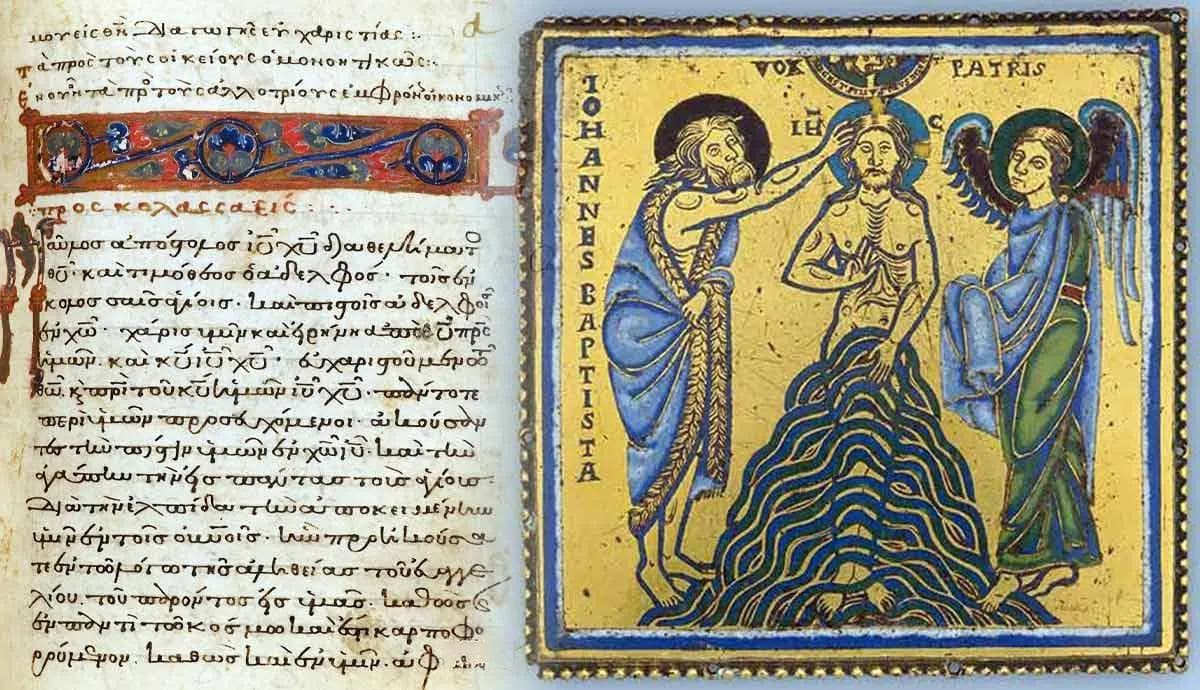 τὰ πρὸς τοὺς οἰκείους ὁμονοητικῶς:
τὰ πρὸς τοὺς ἀλλοτρίους
προς κολασσαεις
Παῦλος ἀπόστολος ἰ̅υ̅ χ̅υ̅ διὰ θελήματ
θ̅υ̅· καὶ τιμόθεος ὁ ἀδελφός· τοῖς ἐν
κολοσσαῖς ἁγίοις· καὶ πιστοῖς ἀδελφοῖς
ἐν χ̅ω̅· χάρις ὑμῖν καὶ εἰρήνη ἀπὸ θ̅υ̅ π̅ρ̅ς̅
ἡμῶν· καὶ κ̅υ̅ ἰ̅υ̅ χ̅υ̅· εὐχαριστοῦμεν τῶ
θ̅ω̅ κ̀ π̅ρ̅ι̅ τοῦ κ̅υ̅ ἡμῶν ἰ̅υ̅ χ̅υ̅· πάντοτε
περὶ ὑμῶν προσευχόμενοι· ἀκούσαν
τες τὴν πίστιν ὑμῶν ἐν χ̅ω̅ ἰ̅υ̅· καὶ τὴν
ἀγάπην τὴν εἰς πάντας τοὺς ἁγίους·
Διὰ τὴν ἐλπίδα τὴν ἀποκειμένην
ὑμῖν ἐν τοῖς οὐ̅νοῖς· ἣν προηκούσα
τε ἐν τῶ λόγω τῆς ἀληθείας τοῦ εὐαγγε
λίου· τοῦ παρόντος εἰς ὑμᾶς· καθὼς
ἐν παντὶ τῶ κόσμω καὶ ἔστι καρποφο
ρούμενον· καθὼς καὶ ἐν ὑμῖν· ἀφ
VOX PATRIS
IH̄ C
IOHANNES BAPTISTA